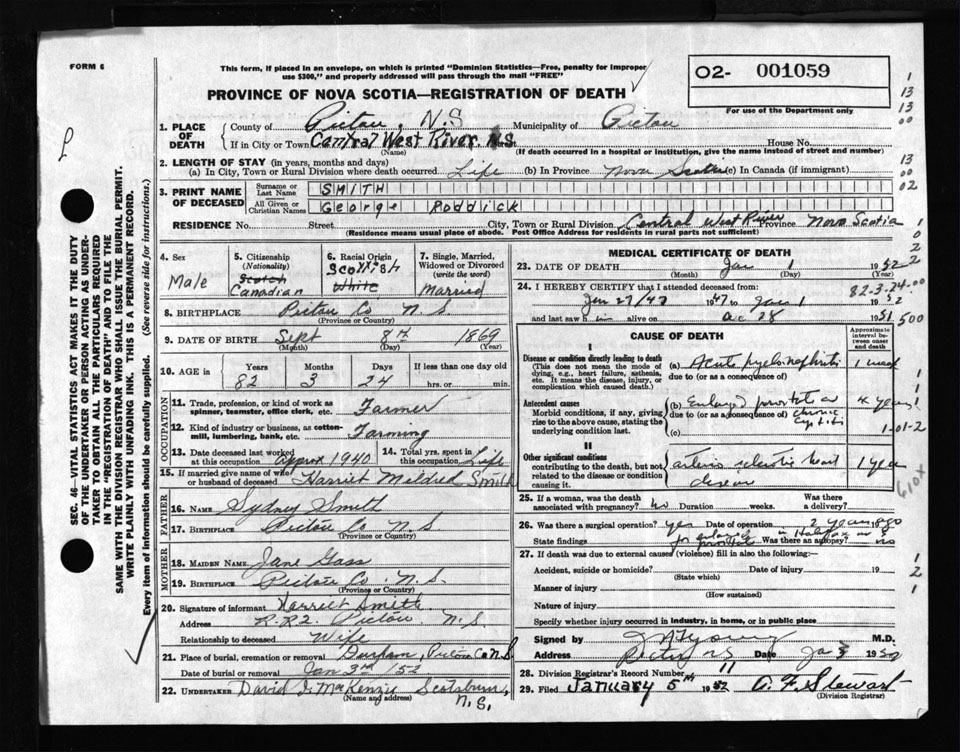 FORM 6
This form, if placed in an envelope, on which is printed "Dominion Statistics—Free, penalty for improper
use $300," and properly addressed will pass through the mail "FREE"
PROVINCE OF NOVA SCOTIA—REGISTRATION OF DEATH
02- 001059
For use of the Department only
1. PLACE OF DEATH
County of Pictou, N.S Municipality of Pictou
If in City or Town Central West River N.S. House No.
(Name) (If death occurred in a hospital or institution, give the name instead of street and number)
2. LENGTH OF STAY (in years, months and days)
(a) In City, Town or Rural Division where death occurred Life (b) In Province Nova Scotia (c) In Canada (if immigrant)
3. PRINT NAME OF DECEASED
Surname or Last Name SMITH
All Given or Christian Names George Roddick
RESIDENCE No. Street City, Town or Rural Division Central West River Province Nova Scotia
(Residence means usual place of abode. Post Office Address for residents in rural parts not sufficient)
4. Sex
Male
5. Citizenship
(Nationality)
Scotch
Canadian
6. Racial Origin
Scottish
White
7. Single, Married,
Widowed or Divorced
(write the word)
Married
8. BIRTHPLACE Pictou Co N.S.
(Province or Country)
9. DATE OF BIRTH Sept 8th 1869
(Month) (Day) (Year)
10. AGE in
Years Months Days If less than one day old
82 3 24 hrs. or min.
OCCUPATION
11. Trade, profession, or kind of work as
spinner, teamster, office clerk, etc. Farmer
12. Kind of industry or business, as cotton-
mill, lumbering, bank, etc. Farming
13. Date deceased last worked
at this occupation approx 1940
14. Total yrs. spent in
this occupation Life
15. If married give name of wife
or husband of deceased Harriet Mildred Smith
FATHER
16. Name Sydney Smith
17. Birthplace Pictou Co N.S
(Province or Country)
MOTHER
18. Maiden Name Jane Gass
19. Birthplace Pictou Co. N.S.
(Province or Country)
20. Signature of informant Harriet Smith
Address R.R2. Pictou N.S.
Relationship to deceased Wife
21. Place of burial, cremation or removal Durham, Pictou Co N.S
Date of burial or removal Jan 3rd 1952
22. Undertaker David MacKenzie Scotsburn,
(Name and address) N.S.
MEDICAL CERTIFICATE OF DEATH
23. DATE OF DEATH Jan 1 1952
(Month) (Day) (Year)
24. I HEREBY CERTIFY that I attended deceased from:
82-3-24-00
Jan 27/47 1947 to Jan 1 1952
and last saw him alive on Dec 28 1951
500
CAUSE OF DEATH
Approximate
interval between
onset and
death
I
Disease or condition directly leading to death
(This does not mean the mode of
dying, e.g., heart failure, asthenia,
etc. It means the disease, injury, or
complication which caused death.)
(a) Acute pyelonephritis 1 week
due to (or as a consequence of)
Antecedent causes
Morbid conditions, if any, giving
rise to the above cause, stating the
underlying condition last.
(b) Enlarged prostate 4 years
due to (or as a consequence of) chronic cystitis
(c)
1-01-2
II
Other significant conditions
contributing to the death, but not
related to the disease or condition
causing it.
arterio sclerotic heart disease 1 year
610+
25. If a woman, was the death
associated with pregnancy? no Duration weeks. Was there
a delivery?
26. Was there a surgical operation? yes Date of operation 2 years ago
State findings for enlarged prostate Halifax Was there an autopsy? no
27. If death was due to external causes (violence) fill in also the following:—
Accident, suicide or homicide? Date of injury 19
(State which)
Manner of injury
(How sustained)
Nature of injury
Specify whether injury occurred in industry, in home, or in public place
Signed by J A Young M.D.
Address Pictou NS Date Jan 3 1952
28. Division Registrar's Record Number 11
29. Filed January 5th 1952 A. F. Stewart
(Division Registrar)
SEC. 46—VITAL STATISTICS ACT MAKES IT THE DUTY
OF THE UNDERTAKER OR PERSON ACTING AS UNDER-
TAKER TO OBTAIN ALL THE PARTICULARS REQUIRED
IN THE "REGISTRATION OF DEATH" AND TO FILE THE
SAME WITH THE DIVISION REGISTRAR WHO SHALL ISSUE THE BURIAL PERMIT.
WRITE PLAINLY WITH UNFADING INK. THIS IS A PERMANENT RECORD.
Every item of information should be carefully supplied. (See reverse side for instructions.)
1
13
13
00
13
00
02
1
0
2
2
1
1
1
1
2
1